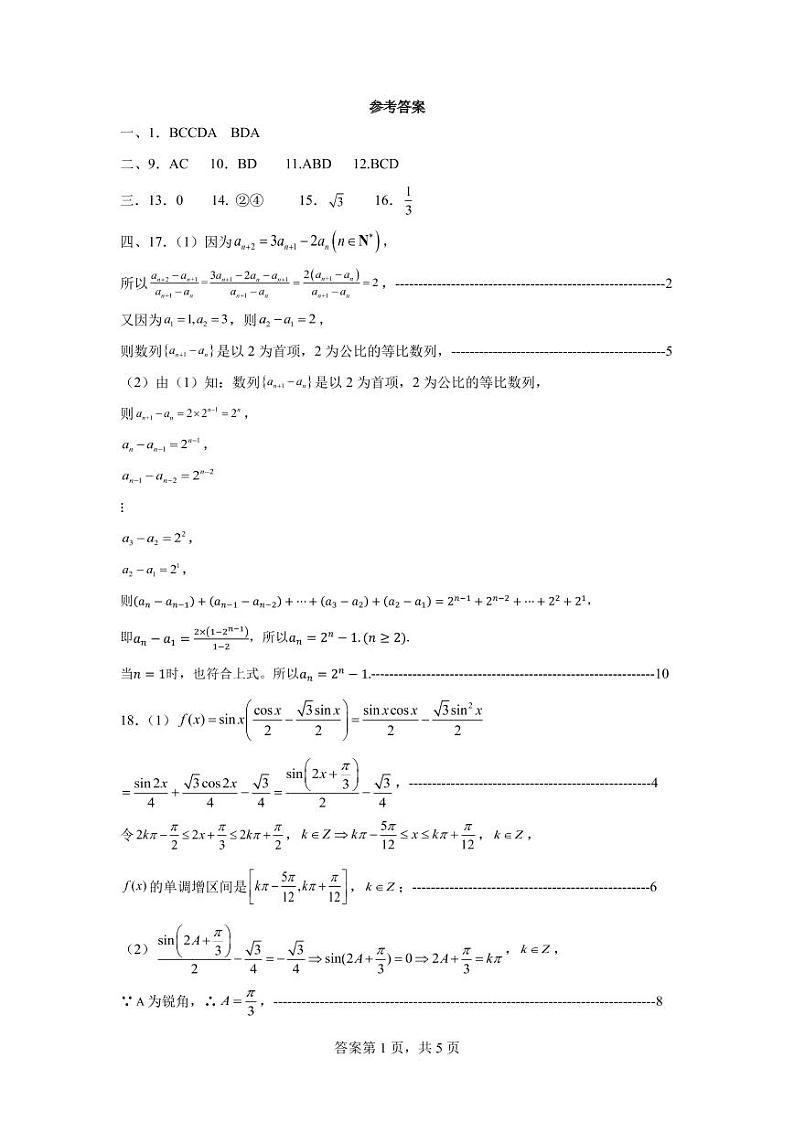 参考答案
一、1．BCCDA BDA
二、9．AC 10．BD 11.ABD 12.BCD
三．13．0 14. ②④ 15． √3 16． 1/3
四、17．（1）因为 a_{n+2} = 3a_{n+1} − 2a_n (n∈N*)，
所以 (a_{n+2} − a_{n+1})/(a_{n+1} − a_n) = (3a_{n+1} − 2a_n − a_{n+1})/(a_{n+1} − a_n) = 2(a_{n+1} − a_n)/(a_{n+1} − a_n) = 2，----------------------------------------------------------2
又因为 a_1 = 1, a_2 = 3，则 a_2 − a_1 = 2，
则数列{a_{n+1} − a_n}是以 2 为首项，2 为公比的等比数列，----------------------------------------------5
（2）由（1）知：数列{a_{n+1} − a_n}是以 2 为首项，2 为公比的等比数列，
则 a_{n+1} − a_n = 2×2^{n−1} = 2^n，
a_n − a_{n−1} = 2^{n−1}，
a_{n−1} − a_{n−2} = 2^{n−2}
⋮
a_3 − a_2 = 2^2，
a_2 − a_1 = 2^1，
则(a_n − a_{n−1}) + (a_{n−1} − a_{n−2}) + ⋯ + (a_3 − a_2) + (a_2 − a_1) = 2^{n−1} + 2^{n−2} + ⋯ + 2^2 + 2^1，
即a_n − a_1 = 2×(1−2^{n−1})/(1−2)，所以a_n = 2^n − 1.(n ≥ 2).
当n = 1时，也符合上式。所以a_n = 2^n − 1.-------------------------------------------------------------10
18.（1）f(x) = sin x(cos x/2 − √3 sin x/2) = sin x cos x/2 − √3 sin² x/2
= sin 2x/4 + √3 cos 2x/4 − √3/4 = sin(2x + π/3)/2 − √3/4，----------------------------------------------------4
令 2kπ − π/2 ≤ 2x + π/3 ≤ 2kπ + π/2，k∈Z ⇒ kπ − 5π/12 ≤ x ≤ kπ + π/12，k∈Z，
f(x) 的单调增区间是[kπ − 5π/12, kπ + π/12]，k∈Z；---------------------------------------------------6
（2）sin(2A + π/3)/2 − √3/4 = −√3/4 ⇒ sin(2A + π/3) = 0 ⇒ 2A + π/3 = kπ，k∈Z，
∵ A 为锐角，∴ A = π/3，----------------------------------------------------------------------------------8
答案第 1 页，共 5 页